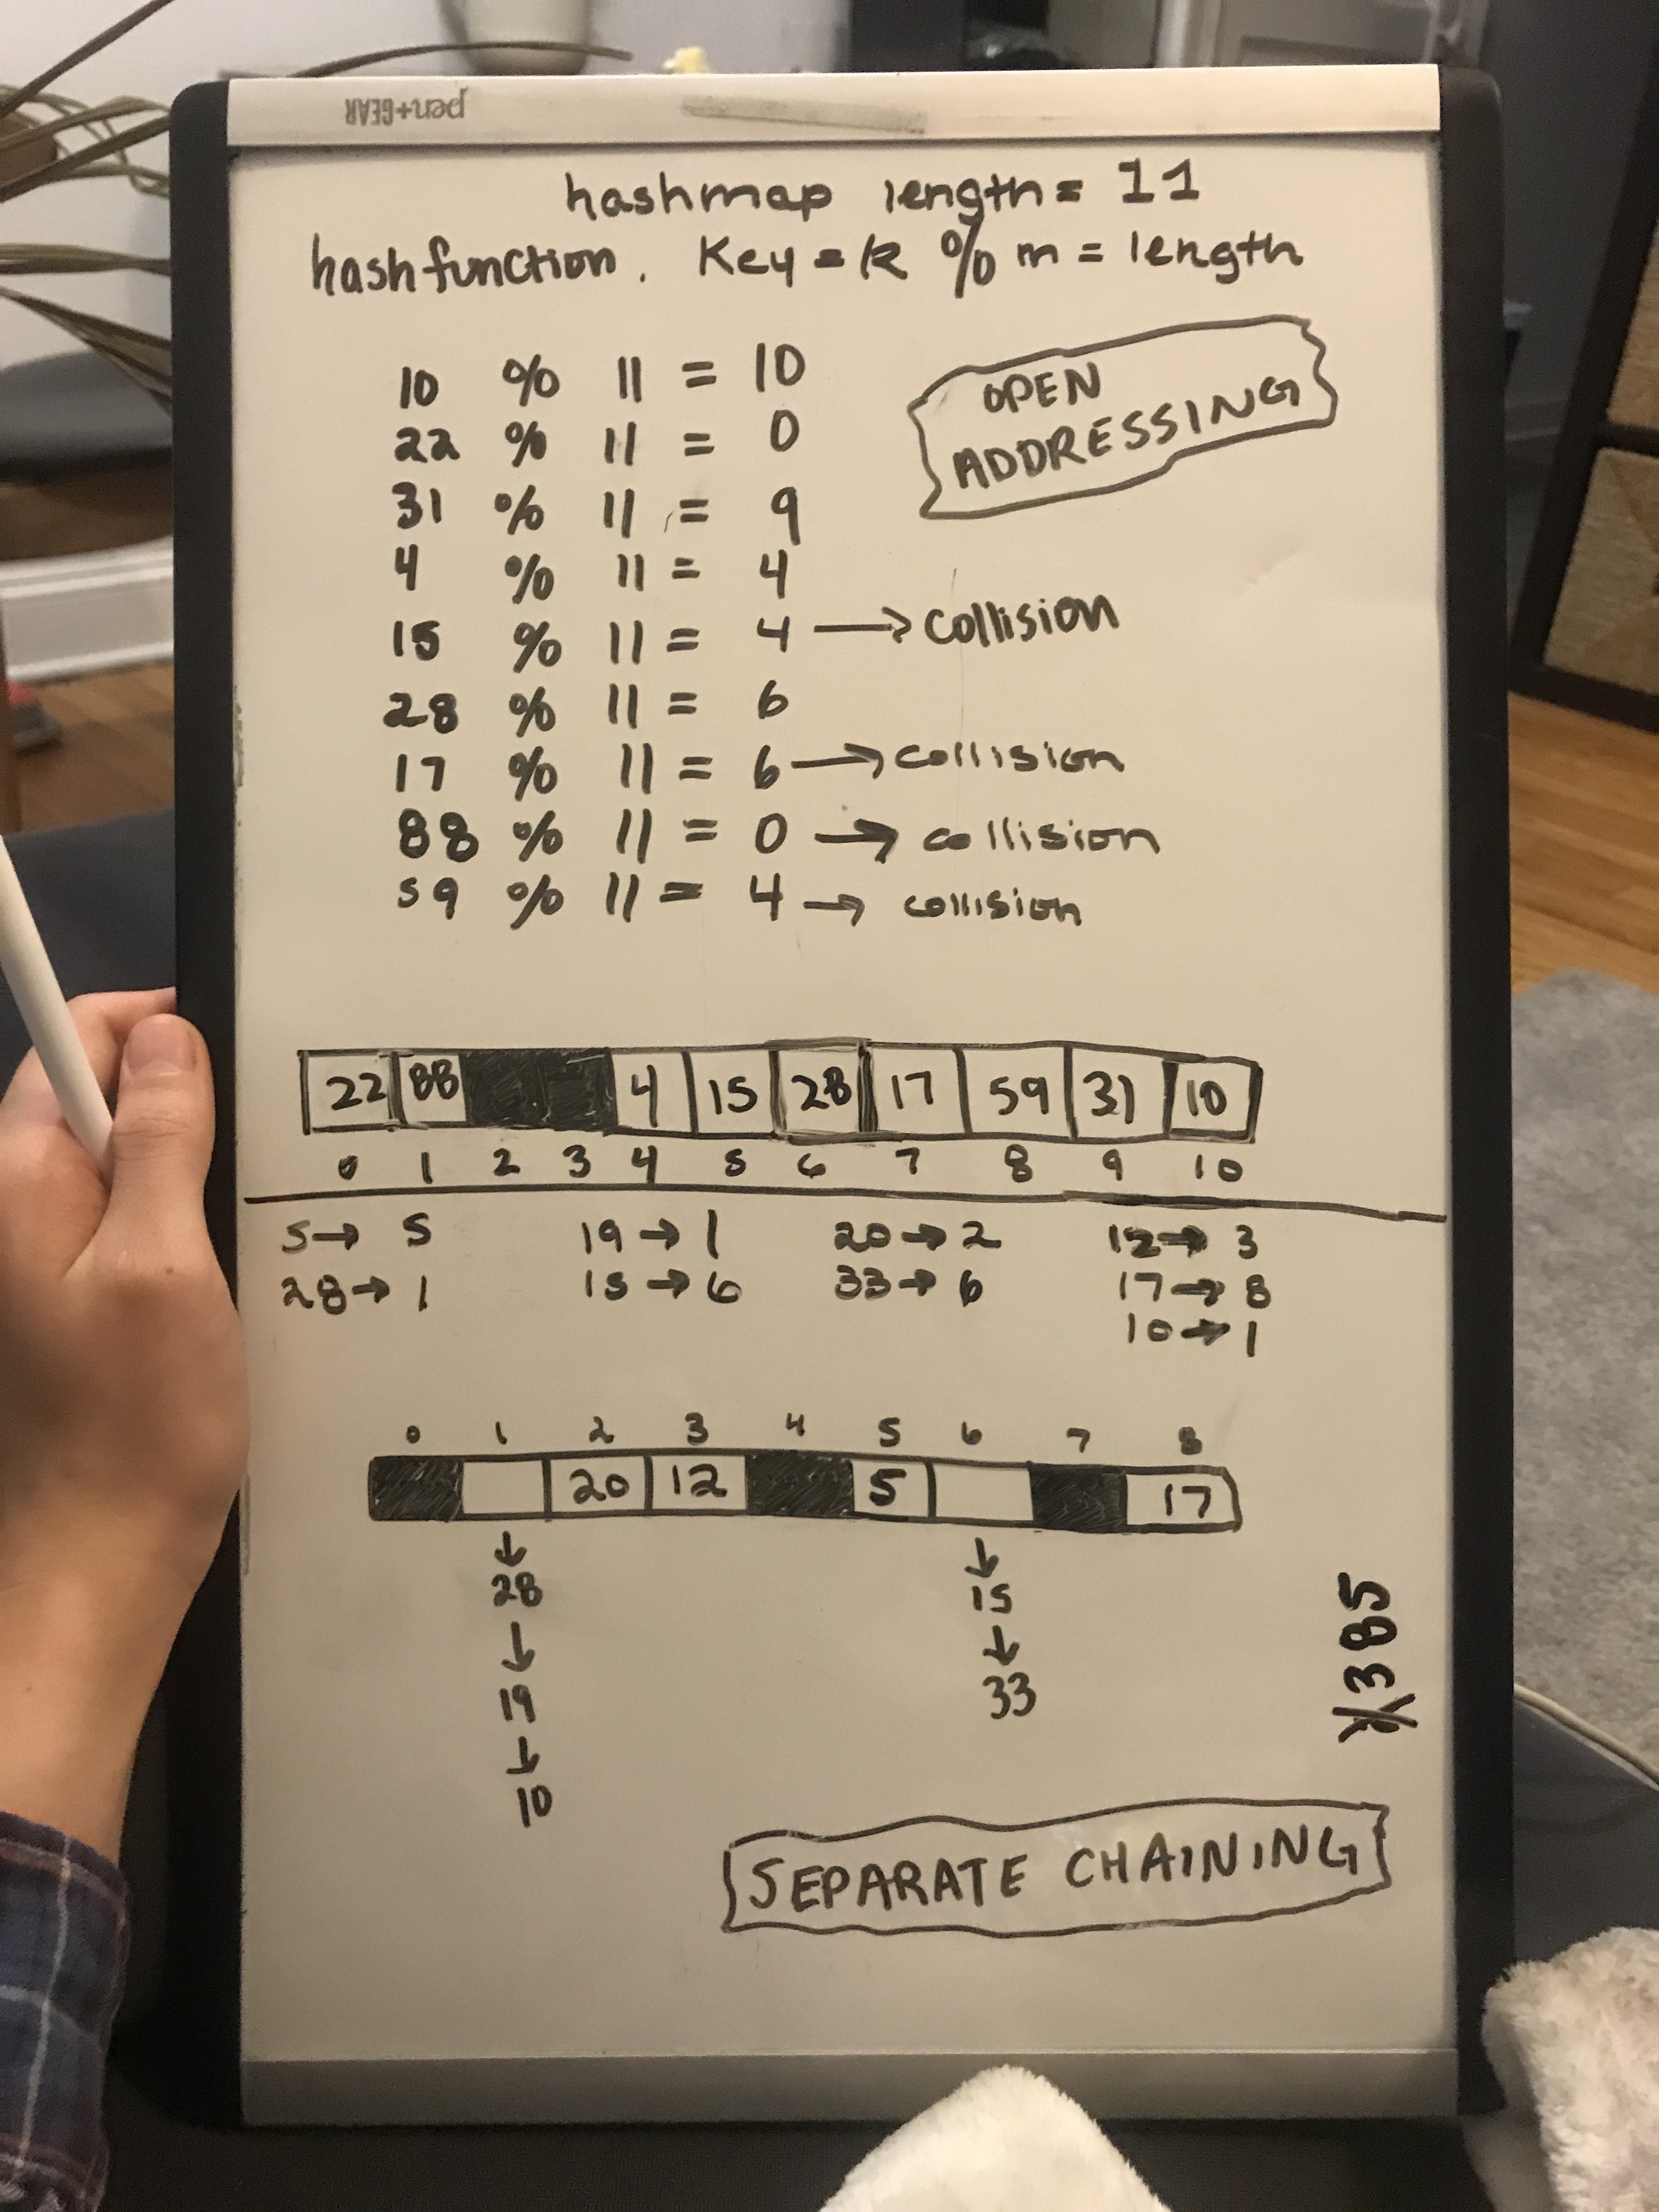 pen+GEAR
hashmap length = 11
hashfunction. Key = k % m = length
10 % 11 = 10
22 % 11 = 0
31 % 11 = 9
4 % 11 = 4
15 % 11 = 4 → collision
28 % 11 = 6
17 % 11 = 6 → collision
88 % 11 = 0 → collision
59 % 11 = 4 → collision
OPEN
ADDRESSING
22 88 4 15 28 17 59 31 10
0 1 2 3 4 5 6 7 8 9 10
5 → 5 19 → 1 20 → 2 12 → 3
28 → 1 15 → 6 33 → 6 17 → 8
10 → 1
0 1 2 3 4 5 6 7 8
20 12 5 17
↓ ↓
28 15
↓ ↓
19 33
↓
10
385
SEPARATE CHAINING